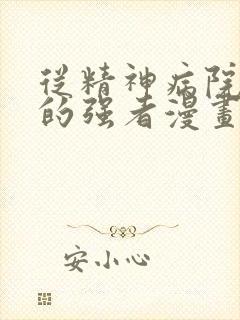 從精神病院
的强者漫畫
安小心